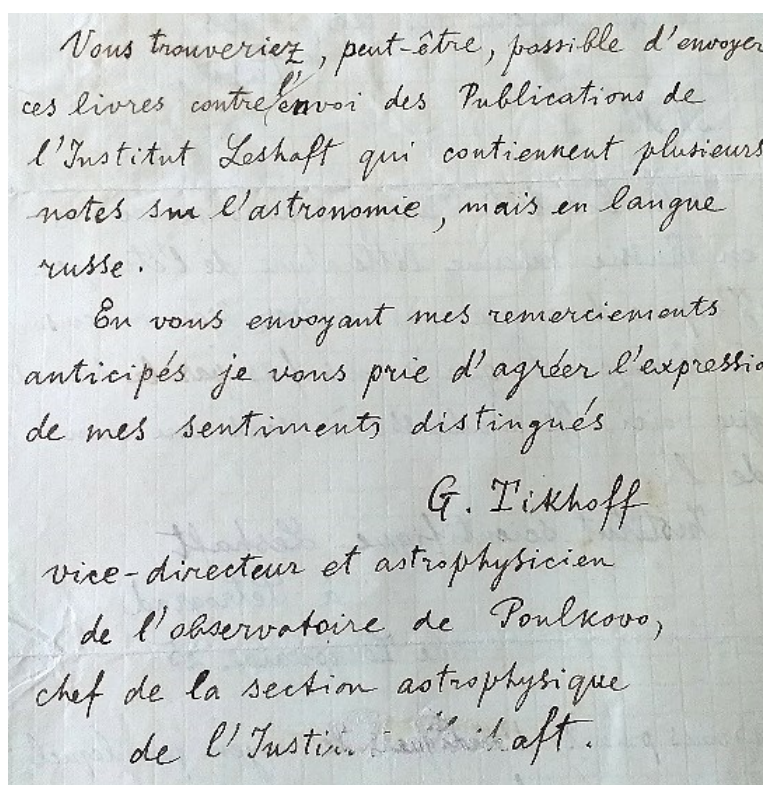 Vous trouveriez, peut-être, possible d'envoyer
ces livres contre l'envoi des Publications de
l'Institut Leshaft qui contiennent plusieurs
notes sur l'astronomie, mais en langue
russe.
En vous envoyant mes remerciements
anticipés je vous prie d'agréer l'expressio
de mes sentiments distingués
G. Tikhoff
vice-directeur et astrophysicien
de l'observatoire de Poulkovo,
chef de la section astrophysique
de l'